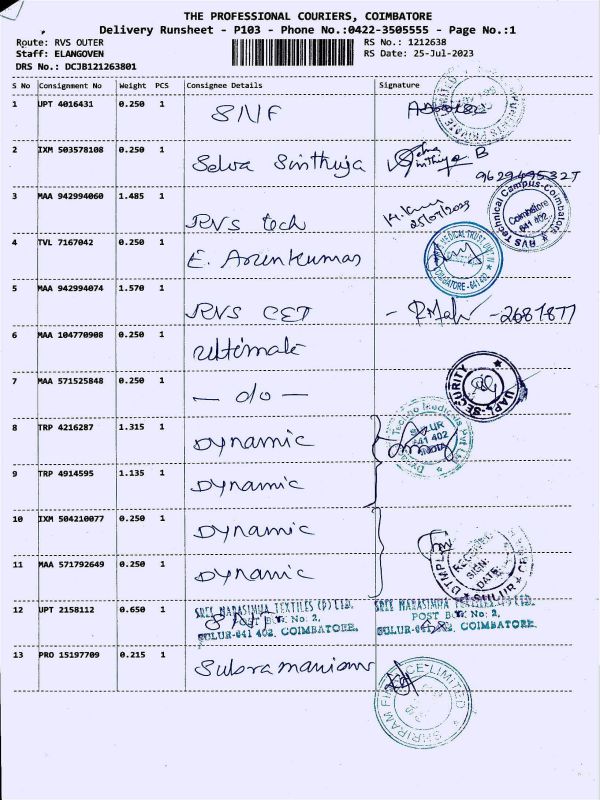 THE PROFESSIONAL COURIERS, COIMBATORE
Delivery Runsheet - P103 - Phone No.:0422-3505555 - Page No.:1
Route: RVS OUTER RS No.: 1212638
Staff: ELANGOVEN RS Date: 25-Jul-2023
DRS No.: DCJB121263801
S No Consignment No Weight PCS Consignee Details Signature
1 UPT 4016431 0.250 1 SNF
2 IXM 503578108 0.250 1 Selva Sinthuja Selva Sinthuja B
9629495327
3 MAA 942994060 1.485 1 RVS tech 25/07/2023
RVS Technical Campus-Coimbatore
Coimbatore 641 402
4 TVL 7167042 0.250 1 E. Arunkumar
COIMBATORE - 641 402
5 MAA 942994074 1.570 1 RVS CET
6 MAA 104770908 0.250 1 Ultimate
7 MAA 571525848 0.250 1 — do —
UAPL-SECURITY
8 TRP 4216287 1.315 1 Dynamic
SULUR
641 402
9 TRP 4914595 1.135 1 Dynamic
10 IXM 504210077 0.250 1 Dynamic
11 MAA 571792649 0.250 1 Dynamic
RECEIVED
SIGN:
DATE:
SULUR
12 UPT 2158112 0.650 1 SREE NARASIMHA TEXTILES (P) LTD. SREE NARASIMHA TEXTILES (P) LTD.
POST Box No: 2, POST Box No: 2,
SULUR-641 402, COIMBATORE. SULUR-641 402, COIMBATORE.
13 PRO 15197709 0.215 1 Subramaniam
SHRIRAM FINANCE LIMITED